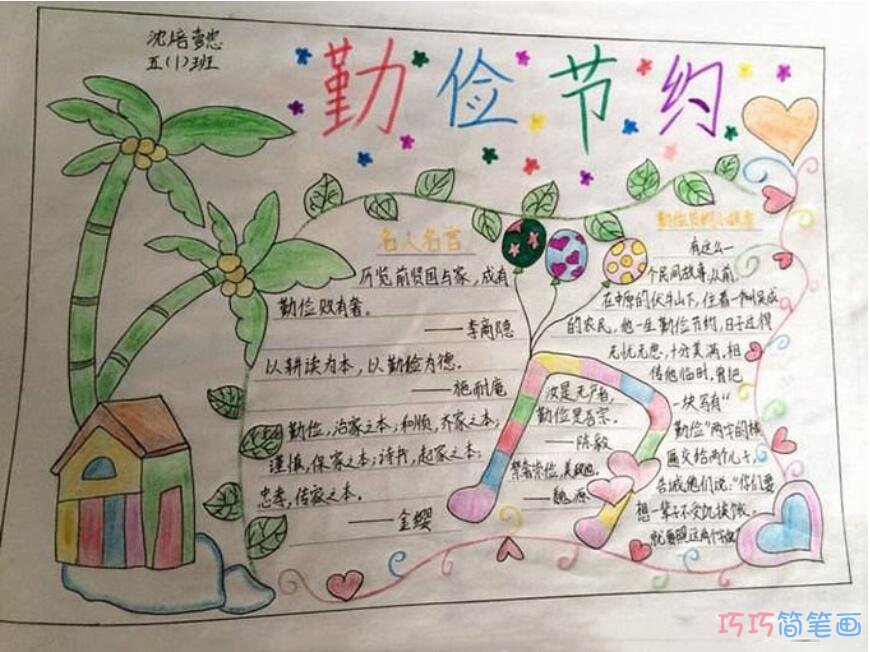 沈培
五(1)班
勤俭节约
名人名言
历览前贤国与家,成有
勤俭败有奢。
——李商隐
以耕读为本,以勤俭为德。
——施耐庵
勤俭,治家之本;和顺,齐家之本;
谨慎,保家之本;诗书,起家之本;
忠孝,传家之本。
——金缨
汝是无产者,
勤俭是吾宗。
——陈毅
——魏源
勤俭节约小故事
有这么一
个民间故事,从前,
在中原的伏牛山下,住着一个叫吴成
的农民,他一生勤俭节约,日子过得
无忧无愁,十分美满,相
传他临时,曾把
一块写有“
勤俭”两字的横
匾交给两个儿子,
告诫他们说:“你们要
想一辈子不受饥挨饿。
就要照这两个字做
巧巧简笔画